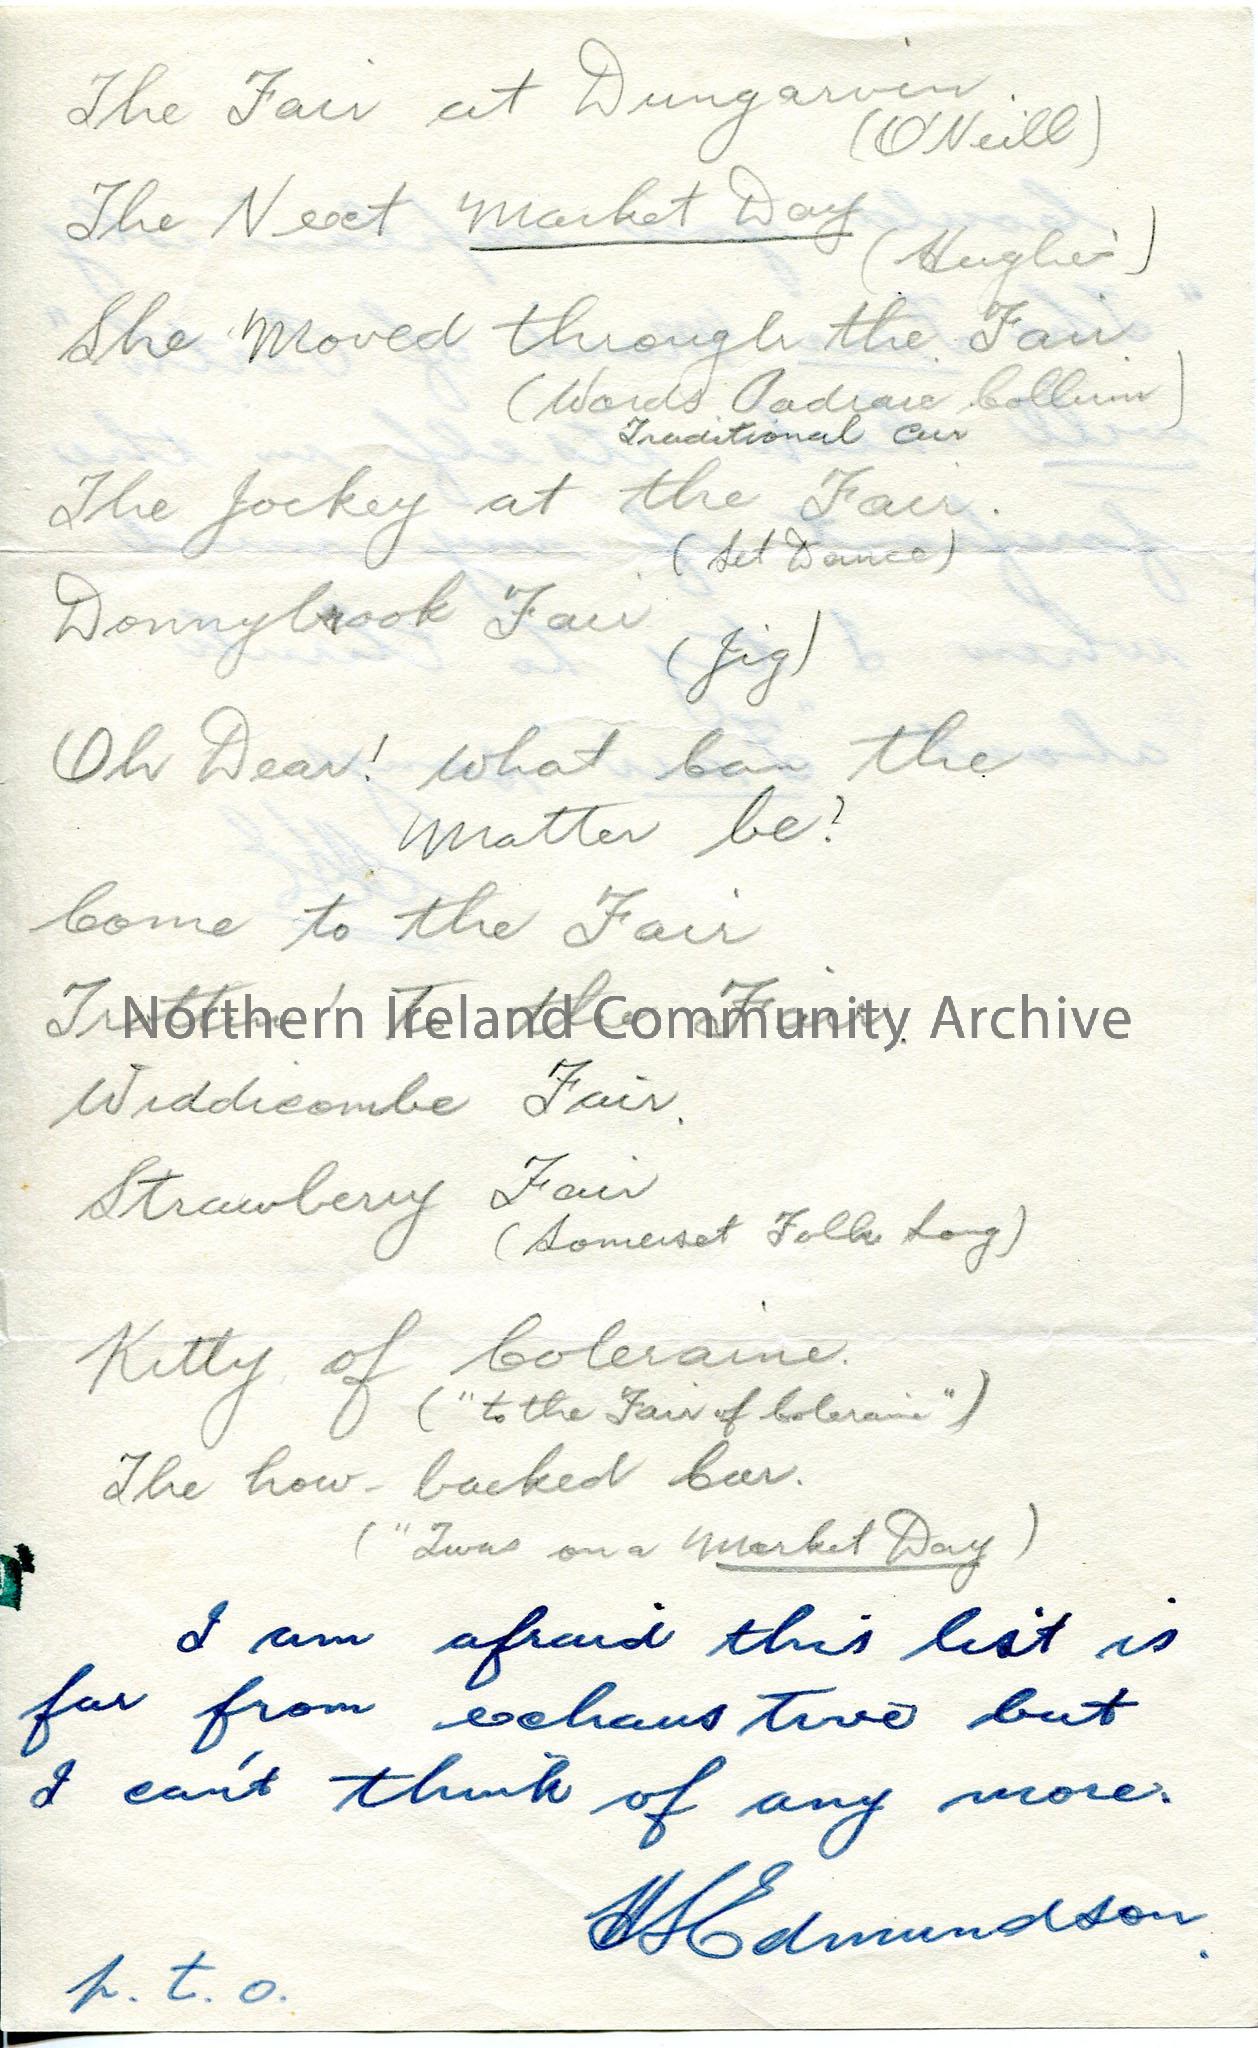 The Fair at Dungarvin.
(O'Neill)
The Next Market Day
(Hughes)
She Moved through the Fair
(Words Padraic Collum)
Traditional air
The Jockey at the Fair.
(Set Dance)
Donnybrook Fair
(Jig)
Oh Dear! What Can the
Matter be?
Come to the Fair
Trottin' to the Fair.
Northern Ireland Community Archive
Widdicombe Fair.
Strawberry Fair
(Somerset Folk Song)
Kitty of Coleraine.
("to the Fair of Coleraine")
The how-backed Car.
("Twas on a Market Day)
I am afraid this list is
far from exhaustive but
I can't think of any more.
HSEdmundson.
p.t.o.